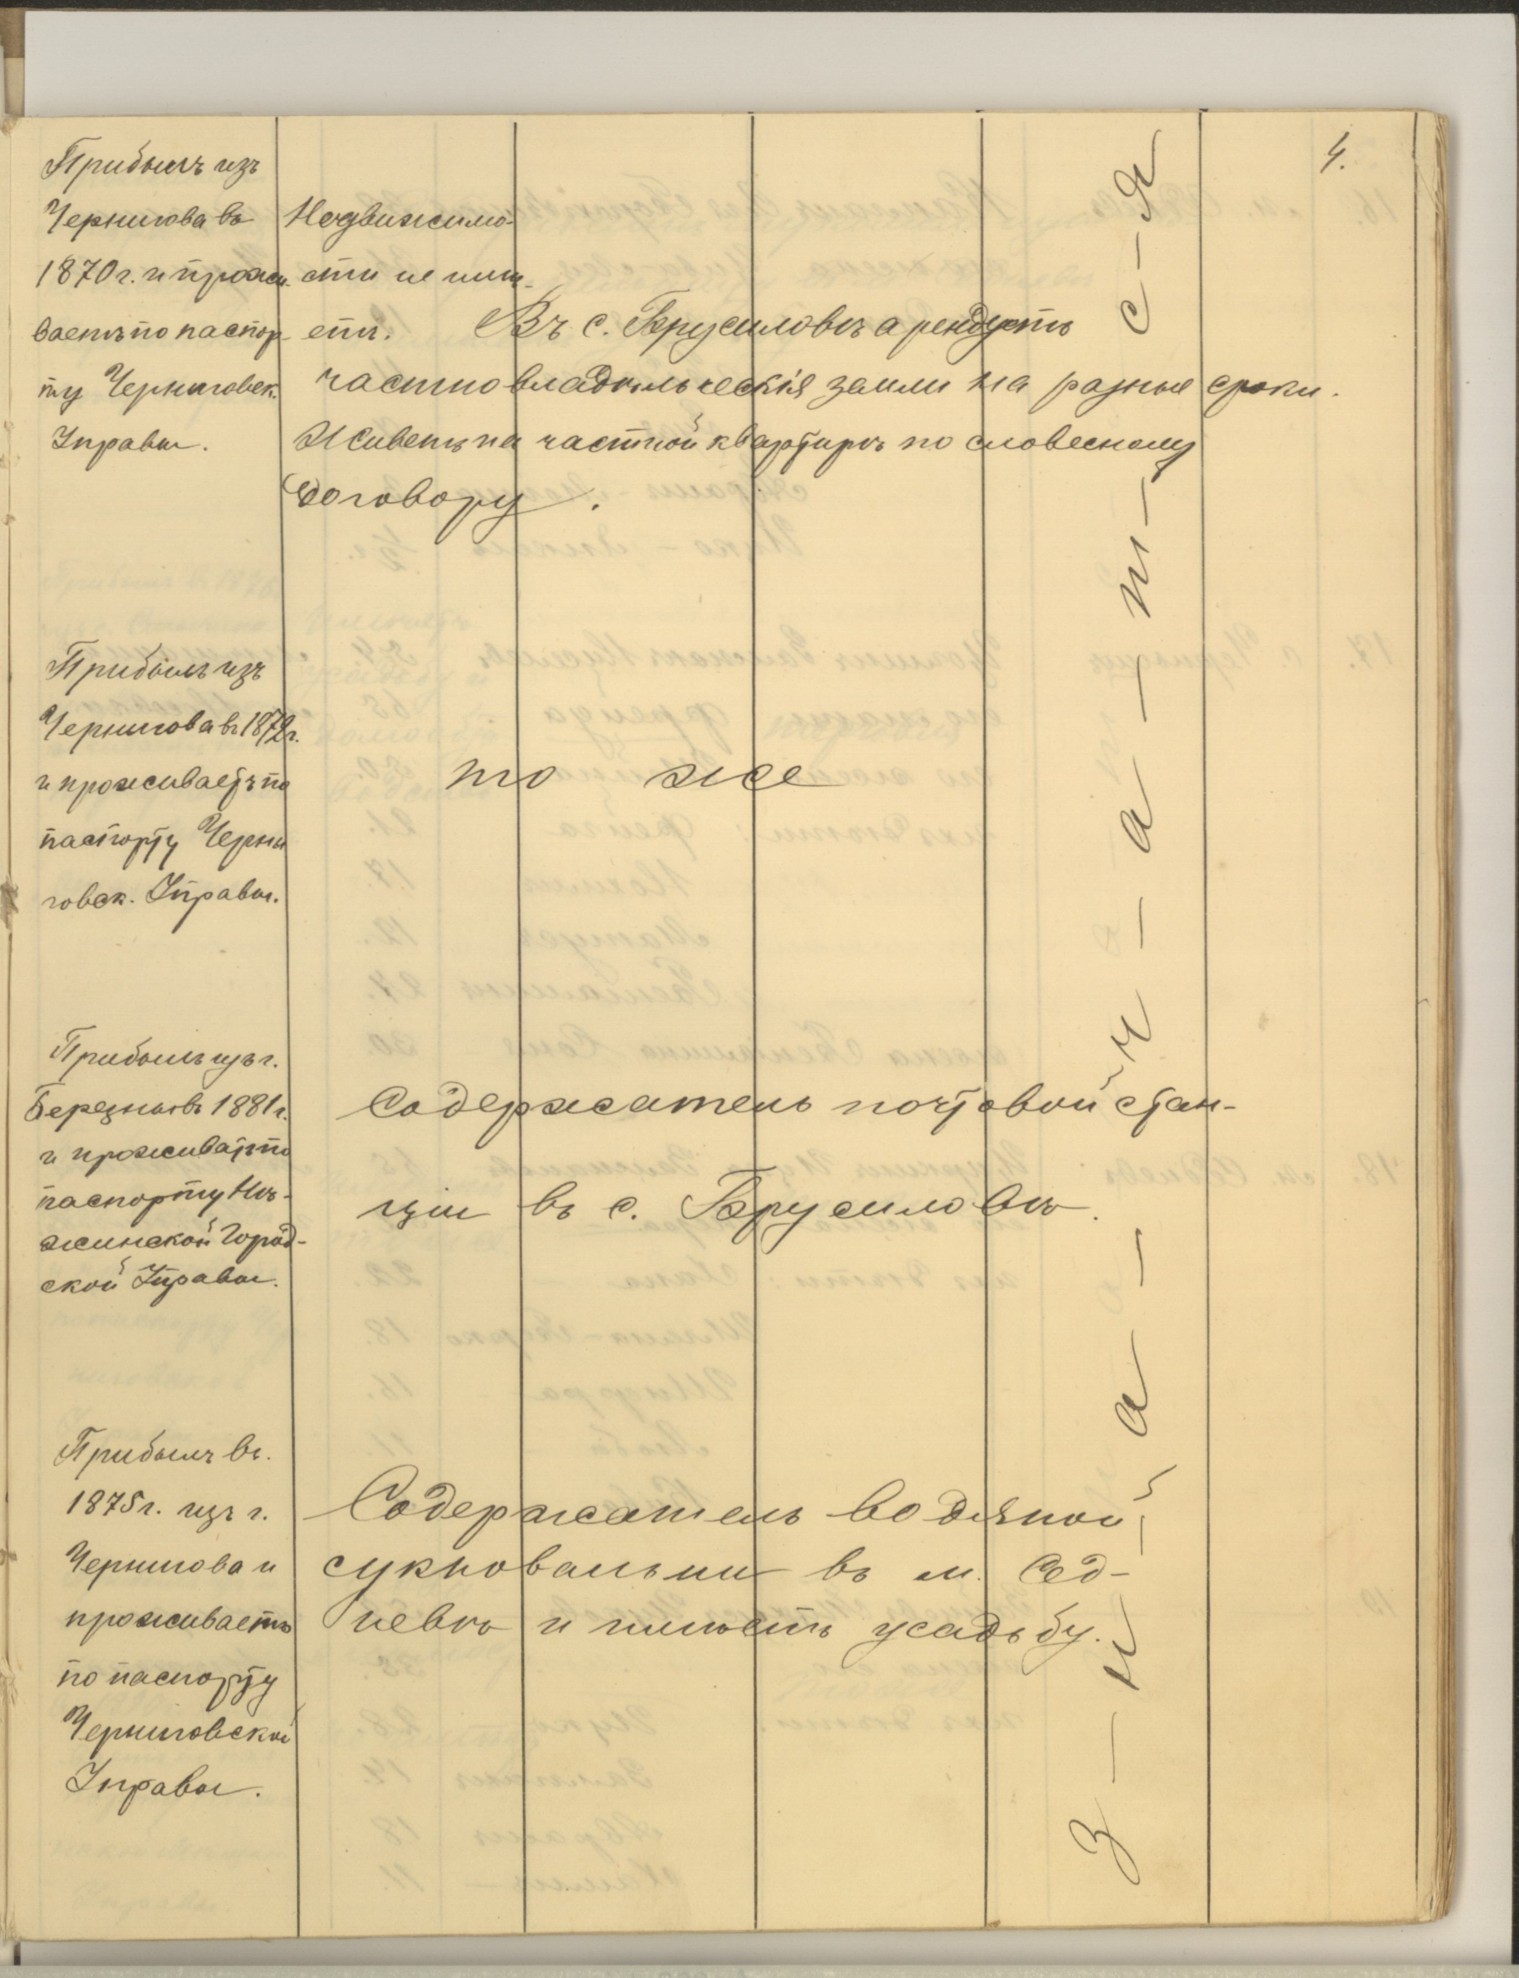 4.
Прибылъ изъ
Чернигова въ
1870 г. и прожи-
ваетъ по паспор-
ту Черниговск.
Управы.
Недвижимо-
сти не имѣ-
етъ. Въ с. Брусиловѣ арендуетъ
частновладѣльческія земли на разные сроки.
Живетъ на частной квартирѣ по словесному
договору.
Прибылъ изъ
Чернигова въ 1872 г.
и проживаетъ по
паспорту Черни
говск. Управы.
то же
Прибылъ изъ г.
Березны въ 1881 г.
и проживаетъ по
паспорту Нѣ-
жинской Город-
ской Управы.
Содержатель почтовой стан-
ціи въ с. Брусиловѣ.
Прибылъ въ
1875 г. изъ г.
Чернигова и
проживаетъ
по паспорту
Черниговской
Управы.
Содержатель водяной
сукновальни въ м. Сед-
невѣ и имѣетъ усадьбу.
З-н-а-ч-а-т-с-я